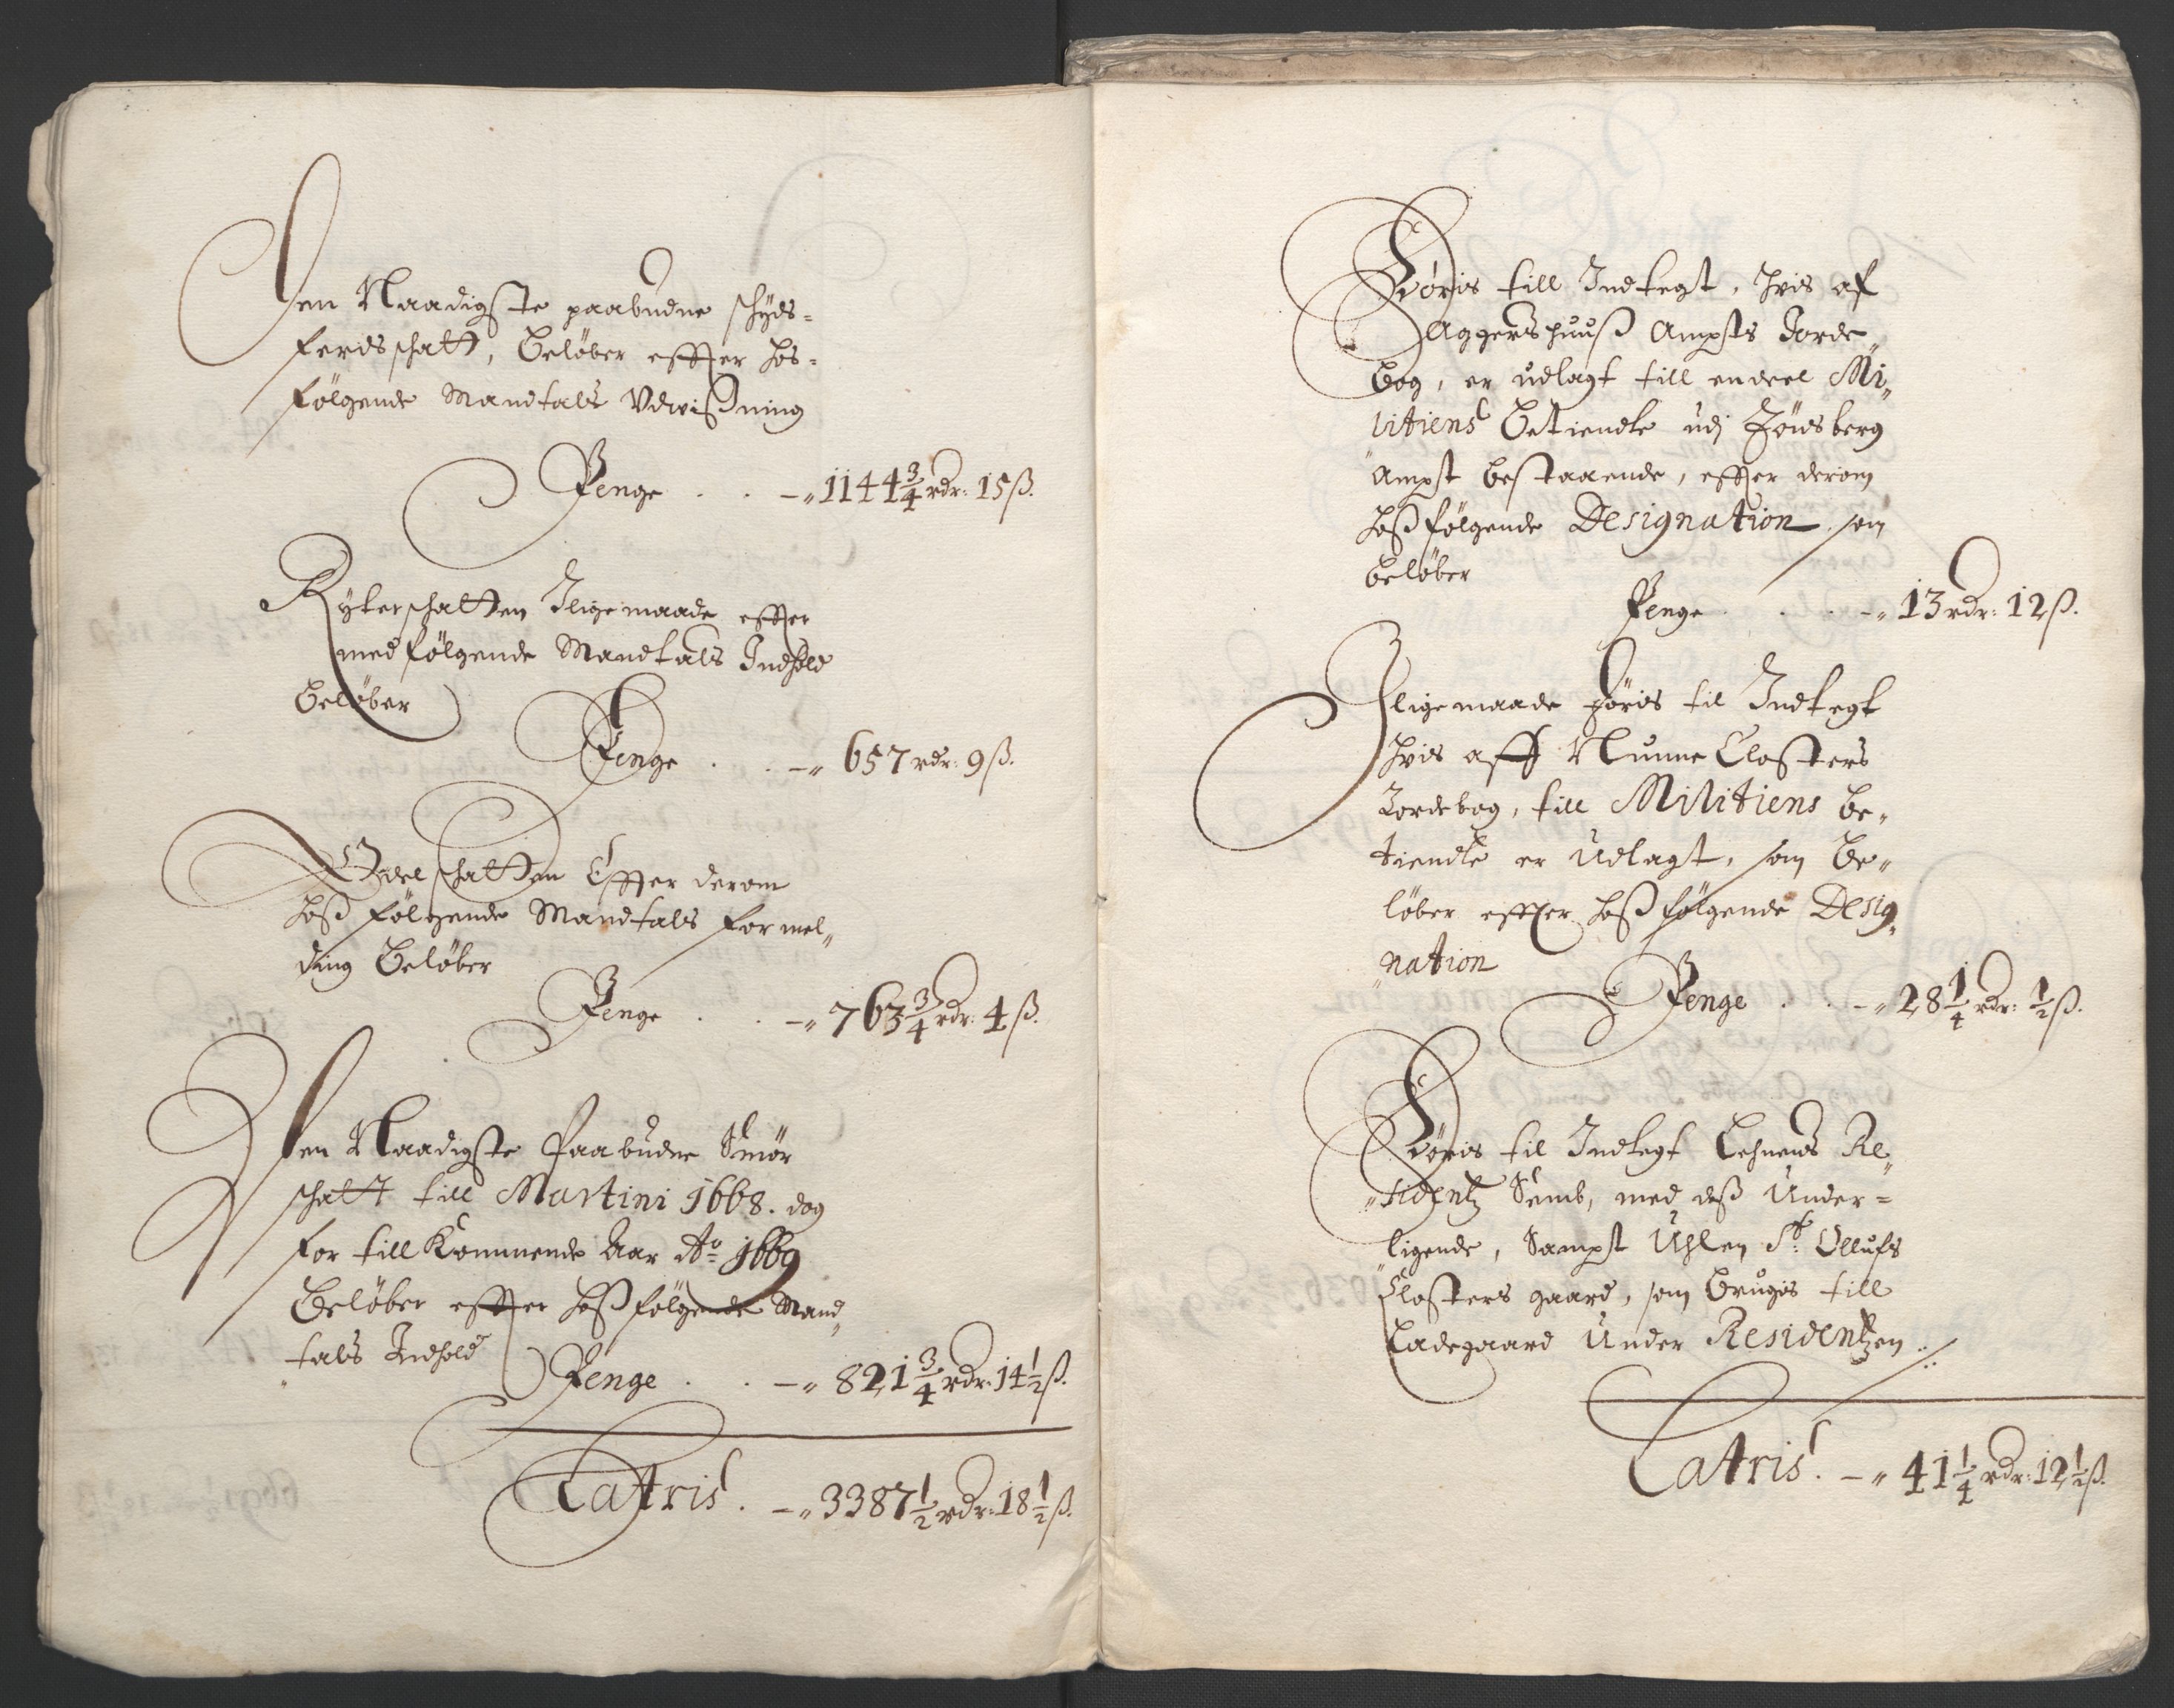 Den Naadigste paabudne schyds-
ferdsschatt, beløber effter hos-
følgende Mandtals Udvissning
Penge . . -„ 1144¾ rdr: 15 ß.
Rytterschatten Iligemaade effter
medfølgende Mandtals Indhold
beløber
Penge . . -„ 657 rdr: 9 ß.
Odelschatten Effter derom
hoßfølgende Mandtals formel„
ding beløber
Penge . . -„ 763¾ rdr: 4 ß.
Den Naadigste Paabudne Smør
schatt till Martini 1668. dog
for till Kommende Aar Ao 1669
Beløber effter hoßfølgende Mand„
tals Indhold
Penge . . -„ 821¾ rdr: 14½ ß.
Latris. -„ 3387½ rdr: 18½ ß.
Føris till Indtegt, hvis af
Aggershuuß Ampts Jorde„
bog, er udlagt till endeel Mi„
litiens betiendte udj Tønsberg
Ampt bestaaende, effter derom
hoßfølgende Designation som
beløber
Penge . . -„ 13 rdr: 12 ß.
Iligemaade føris til Indtegt
hvis aff Nunne Closters
Jordebog, till Militiens be„
tiendte er Udlagt, som be„
løber effter hoßfølgende Desig„
nation
Penge . . -„ 28¼ rdr: ½ ß.
Føris til Indtegt Lehnens Re„
sidentz Semb, med deß Under=
ligende, Sampt Uhlen St: Ollufs
Closters gaard, som brugis till
Ladegaard Under Residentzen ./.
Latris. -„ 41¼ rdr: 12½ ß.